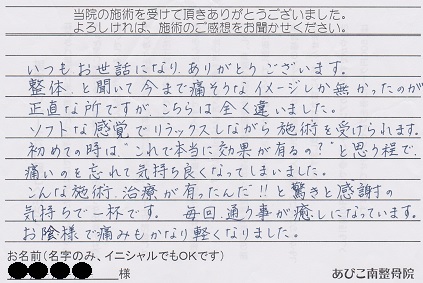 当院の施術を受けて頂きありがとうございました。
よろしければ、施術のご感想をお聞かせください。
いつもお世話になり、ありがとうございます。
整体、と聞いて今まで痛そうなイメージしか無かったのが
正直な所ですが、こちらは全く違いました。
ソフトな感覚でリラックスしながら施術を受けられます。
初めての時は、"これで本当に効果が有るの?"と思う程で、
痛いのを忘れて気持ち良くなってしまいました。
こんな施術、治療が有ったんだ!!と驚きと感謝の
気持ちで一杯です。 毎回、通う事が癒しになっています。
お陰様で痛みもかなり軽くなりました。
お名前(名字のみ、イニシャルでもOKです)
様 あびこ南整骨院